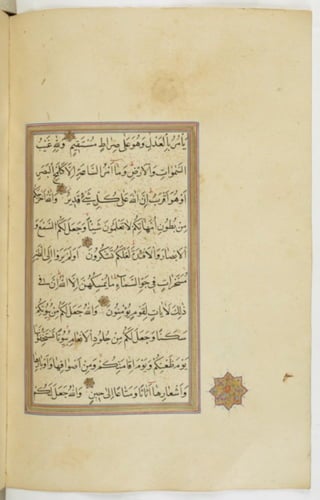 يَأْمُرُ بِالْعَدْلِ وَهُوَ عَلَىٰ صِرَاطٍ مُسْتَقِيمٍ وَلِلَّهِ غَيْبُ
السَّمٰوَاتِ وَالْأَرْضِ وَمَا أَمْرُ السَّاعَةِ إِلَّا كَلَمْحِ الْبَصَرِ
أَوْ هُوَ أَقْرَبُ إِنَّ اللَّهَ عَلَىٰ كُلِّ شَيْءٍ قَدِيرٌ وَاللَّهُ أَخْرَجَكُمْ
مِنْ بُطُونِ أُمَّهَاتِكُمْ لَا تَعْلَمُونَ شَيْئًا وَجَعَلَ لَكُمُ السَّمْعَ وَ
الْأَبْصَارَ وَالْأَفْئِدَةَ لَعَلَّكُمْ تَشْكُرُونَ أَوَلَمْ يَرَوْا إِلَى الطَّيْرِ
مُسَخَّرَاتٍ فِي جَوِّ السَّمَاءِ مَا يُمْسِكُهُنَّ إِلَّا اللَّهُ إِنَّ فِي
ذٰلِكَ لَآيَاتٍ لِقَوْمٍ يُؤْمِنُونَ وَاللَّهُ جَعَلَ لَكُمْ مِنْ بُيُوتِكُمْ
سَكَنًا وَجَعَلَ لَكُمْ مِنْ جُلُودِ الْأَنْعَامِ بُيُوتًا تَسْتَخِفُّونَهَا
يَوْمَ ظَعْنِكُمْ وَيَوْمَ إِقَامَتِكُمْ وَمِنْ أَصْوَافِهَا وَأَوْبَارِهَا
وَأَشْعَارِهَا أَثَاثًا وَمَتَاعًا إِلَىٰ حِينٍ وَاللَّهُ جَعَلَ لَكُمْ